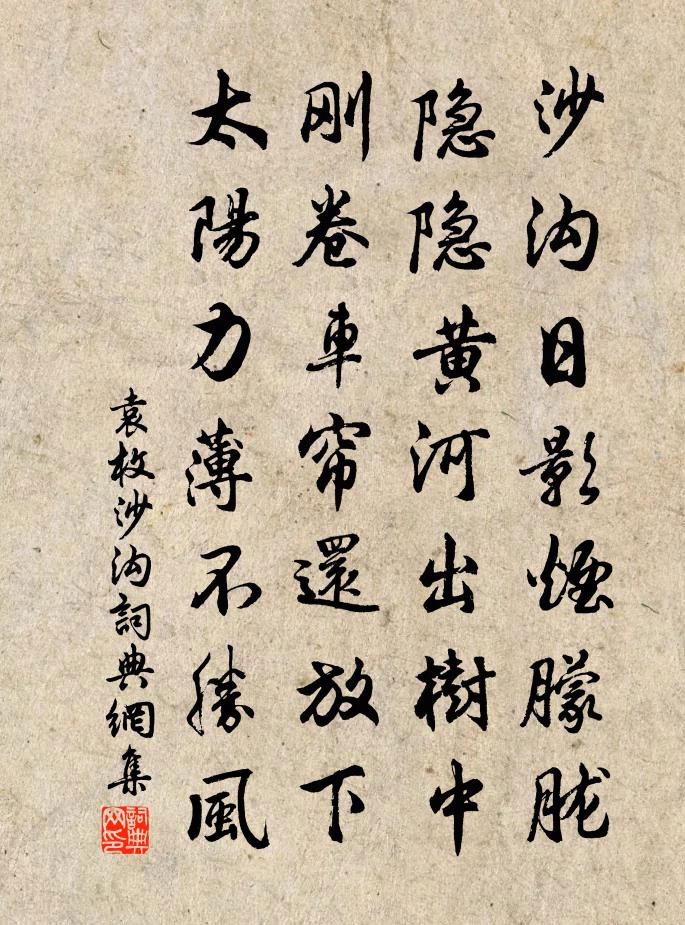 沙沟日影煙朦胧
隐隐黄河出樹中
刚卷車帘還放下
太陽力薄不勝風
袁枚沙沟詞典網集
詞典網印